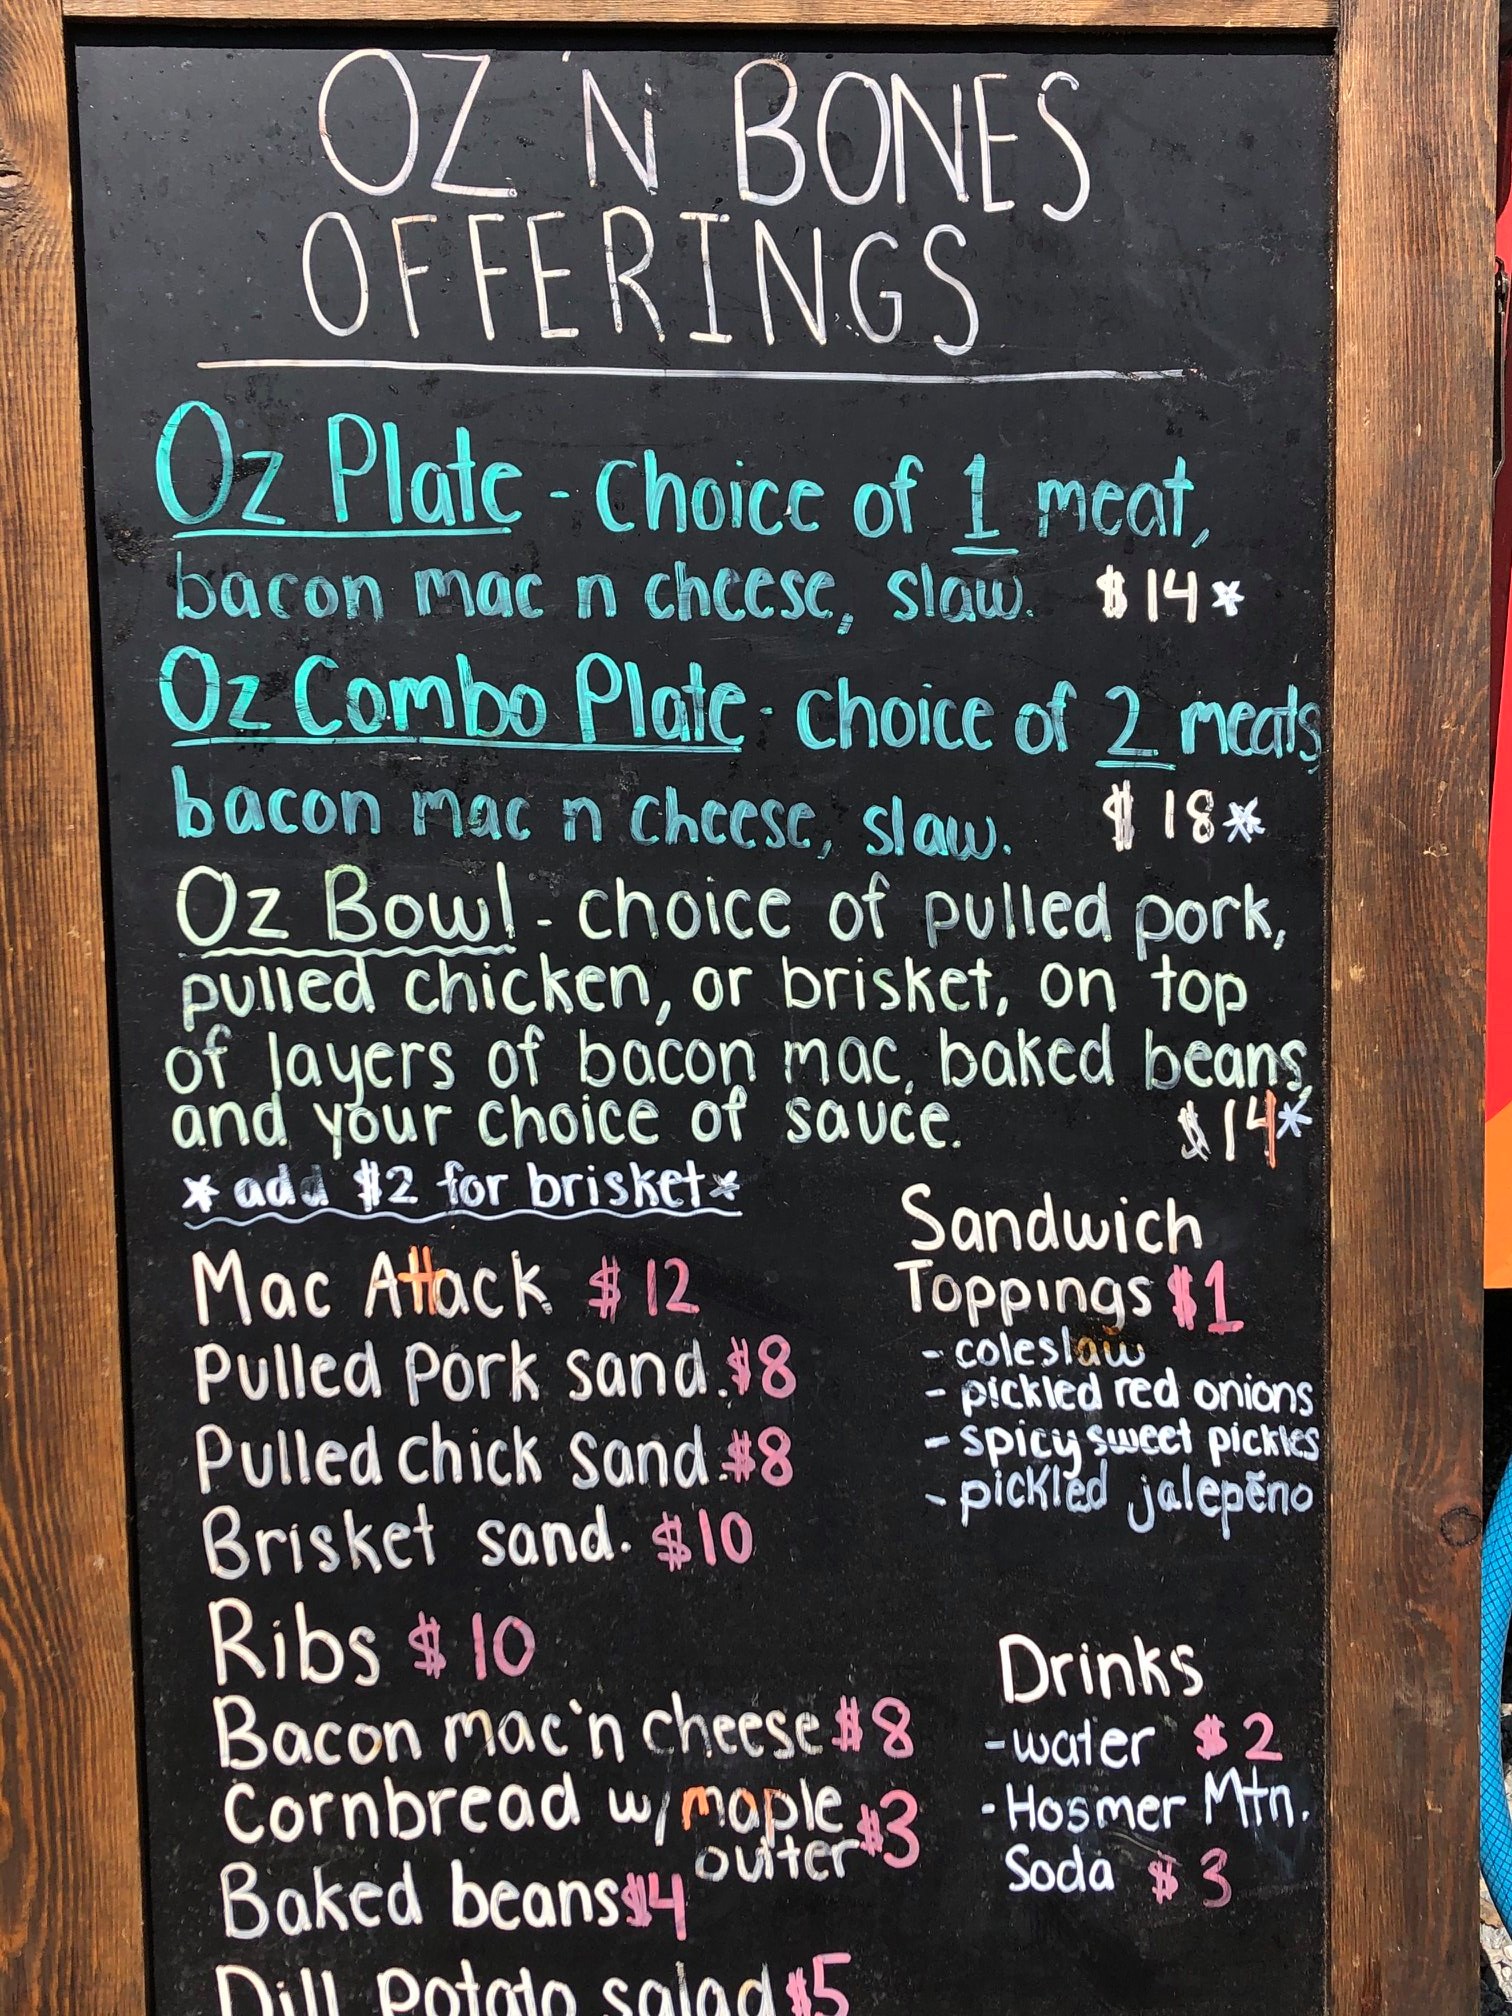 OZ 'N BONES
OFFERINGS
Oz Plate - choice of 1 meat,
bacon mac n cheese, slaw. $14*
Oz Combo Plate - choice of 2 meats,
bacon mac n cheese, slaw. $18*
Oz Bowl - choice of pulled pork,
pulled chicken, or brisket, on top
of layers of bacon mac, baked beans,
and your choice of sauce. $14*
*add $2 for brisket*
Mac Attack $12
Pulled Pork sand. $8
Pulled chick sand. $8
Brisket sand. $10
Ribs $10
Bacon mac 'n cheese $8
Cornbread w/ maple $3
butter
Baked beans $4
Dill Potato salad $5
Sandwich
Toppings $1
- coleslaw
- pickled red onions
- spicy sweet pickles
- pickled jalepēno
Drinks
- water $2
- Hosmer Mtn.
Soda $3